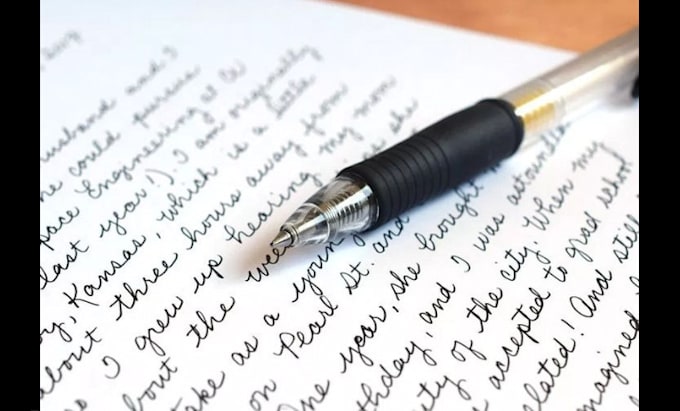 husband and I
he could pursue
pace Engineering at Ce
last year!). I am originally
y, Kansas, which is a little
about three hours away from
so I grew up hearing my mom
bout the wee she
ake as a young
on Pearl St. and
One year, she brought m
thday, and I was astounde
ty of the city. When my
accepted to grad school
lated! And still
magined